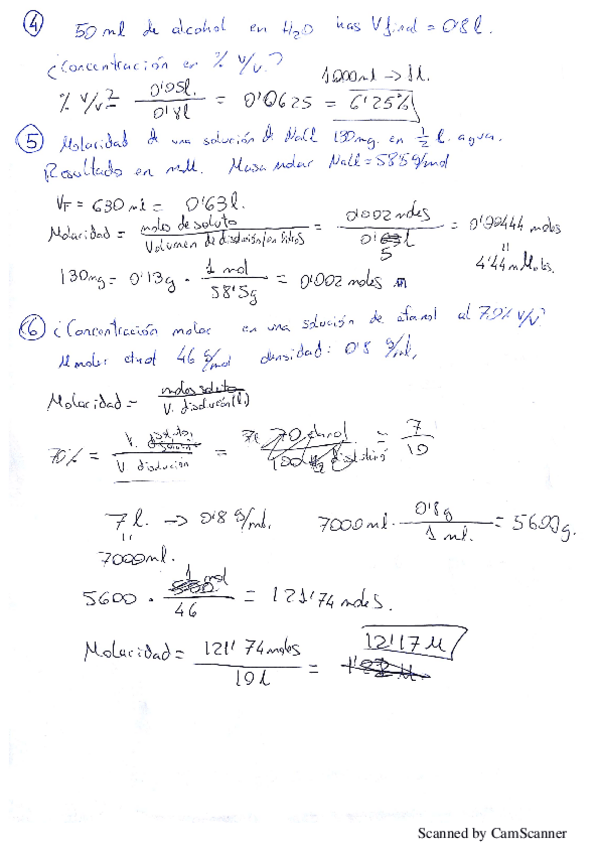 ④ 50 ml de alcohol en H₂O has Vfinal = 0'8 l.
¿Concentración en % V/V?
1000 ml → 1 l.
% V/V = 0'05 l. / 0'8 l = 0'0625 = 6'25%
⑤ Molaridad de una solución de NaCl 130 mg. en 1/2 l. agua.
Resultado en mM. Masa molar NaCl = 58'5 g/mol
VF = 630 ml = 0'63 l.
Molaridad = moles de soluto / Volumen de disolución en litros = 0'002 moles / 0' 5 l = 0'00444 moles
4'44 mMoles.
130 mg = 0'13 g · 1 mol / 58'5 g = 0'002 moles
⑥ ¿Concentración molar en una solución de etanol al 70% V/V?
M molar etanol 46 g/mol densidad: 0'8 g/ml.
Molaridad = moles soluto / V. disolución (l.)
70% = V. / V disolución = 70 etanol / 100 = 7 / 10
7 l. → 0'8 g/ml. 7000 ml · 0'8 g / 1 ml. = 5600 g.
7000 ml.
5600 · 1 mol / 46 = 121'74 moles.
Molaridad = 121'74 moles / 10 l = 12'17 M
Scanned by CamScanner